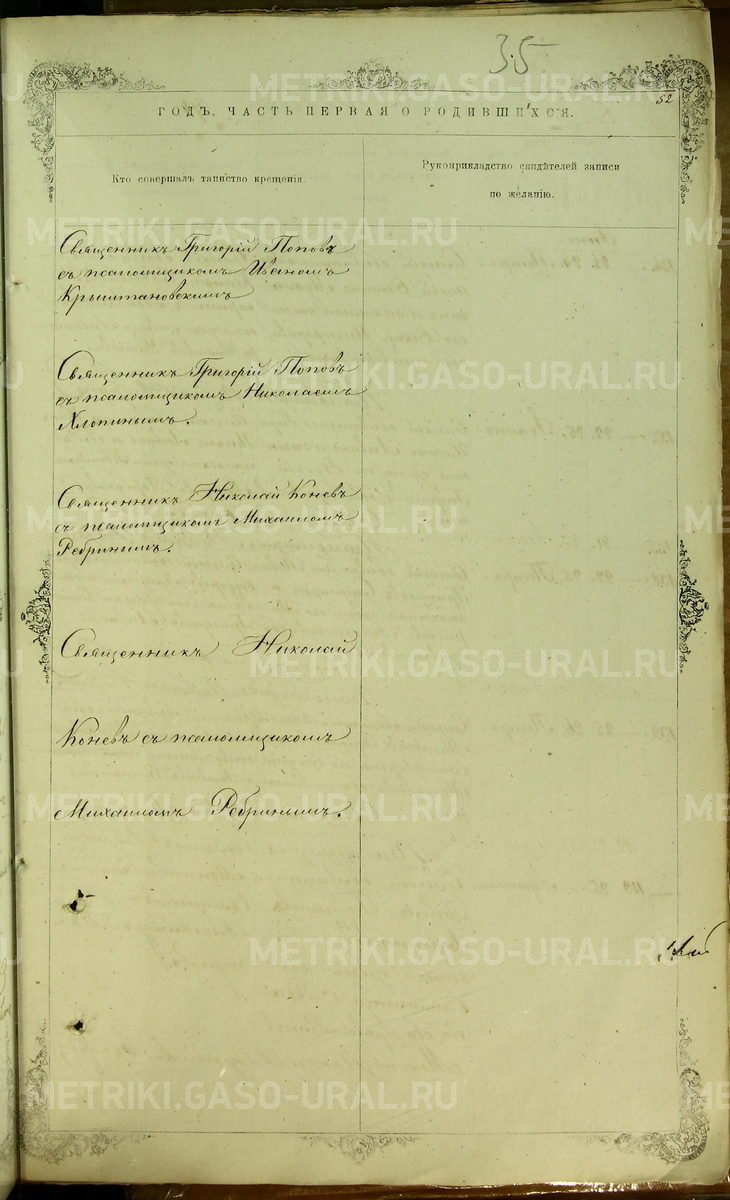 35
52
ГОДЪ. ЧАСТЬ ПЕРВАЯ О РОДИВШИХСЯ.
Кто совершалъ таинство крещенія.
Рукоприкладство свидѣтелей записи
по желанію.
Священникъ Григорій Поповъ
съ псаломщикомъ Иваномъ
Крыштановскимъ
Священникъ Григорій Поповъ
съ псаломщикомъ Николаемъ
Хлопинымъ.
Священникъ Николай Коневъ
съ псаломщикомъ Михаиломъ
Ребринымъ.
Священникъ Николай
Коневъ съ псаломщикомъ
Михаиломъ Ребринымъ.
METRIKI.GASO-URAL.RU